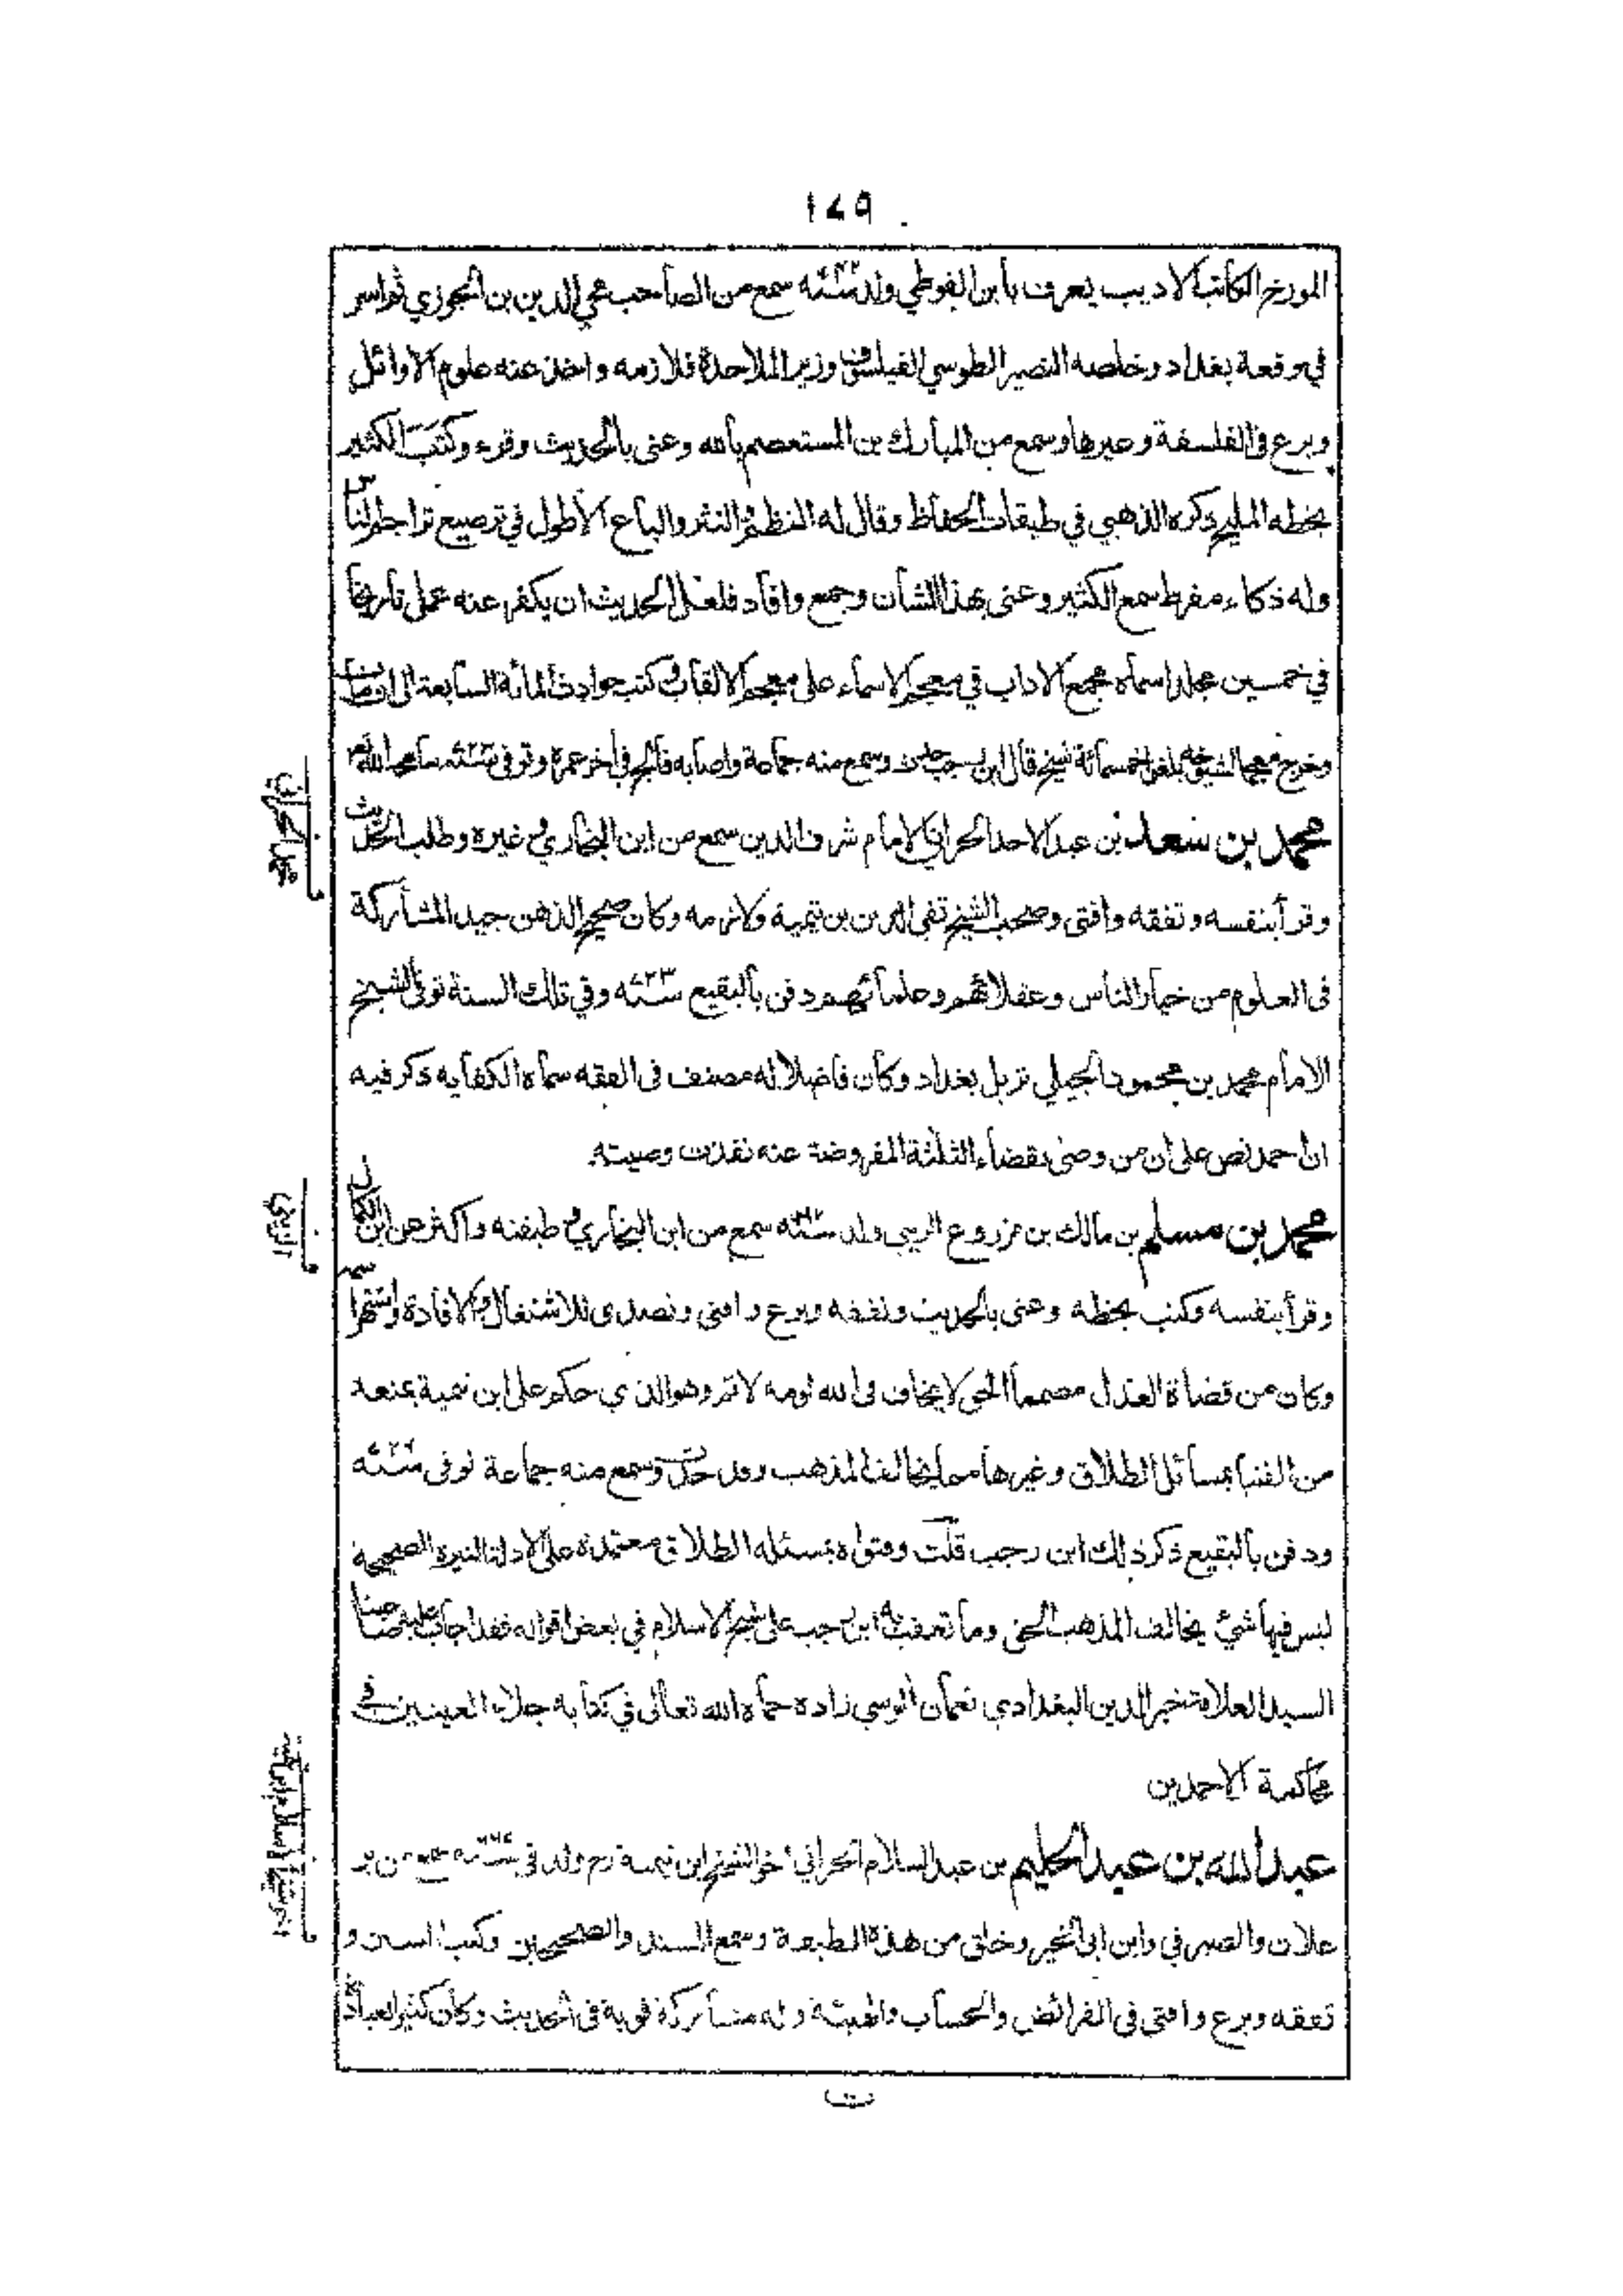 ١٤٩
المورخ الكاتب الاديب يعرف بابن الفوطي ولد سنة سمع من الصاحب محي الدين بن الجوزي ثم اسر
في وقعة بغداد وخلصه النصير الطوسي الفيلسوف وزير الملاحدة فلازمه واخذ عنه علوم الاوائل
وبرع في الفلسفة وغيرها وسمع من المبارك بن المستعصم بالله وعنى بالحديث وقرء وكتب الكثير
بخطه المليح ذكره الذهبي في طبقات الحفاظ وقال له النظم والنثر والباع الأطول في ترصيع تراجم الناس
وله ذكاء مفرط سمع الكثير وعنى بهذا الشان وجمع وافاد فلعل الحديث ان يكفر عنه عمل تاريخا
في خمسين مجلدا سماه مجمع الاداب في معجم الاسماء على معجم الالقاب وكتب حوادث المائة السابعة الى ان مات
وخرج معجما لشيوخه بلغوا خمسمائة شيخ قال ابن رجب حدث وسمع منه جماعة واصابه فالج في أخر عمره وتوفي سنة
محمد بن سعد بن عبد الاحد الحراني الامام شرف الدين سمع من ابن البخاري وغيره وطلب الحديث
وقرأ بنفسه وتفقه وافتى وصحب الشيخ تقي الدين بن تيمية ولازمه وكان صحيح الذهن جيد المشاركة
فى العلوم من خيار الناس وعقلائهم وعلمائهم دفن بالبقيع سنة ٧٢٣ وفي تلك السنة توفى الشيخ
الامام محمد بن محمود الجيلي نزيل بغداد وكان فاضلا له مصنف فى الفقه سماه الكفايه ذكر فيه
ان احمد نص على ان من وصى بقضاء الثلثة المفروضة عنه نفذت وصيته
محمد بن مسلم بن مالك بن مزروع الزيني ولد سنة سمع من ابن البخاري وطبقته واكثر عن ابن الكمال
وقرأ بنفسه وكتب بخطه وعنى بالحديث وتفقه وبرع وافتى وتصدى للاشتغال والافادة واشتهر اسمه
وكان من قضاة العدل مصمما الحق لا يخاف فى الله لومه لائم وهو الذي حكم على ابن تيمية بمنعه
من الفتيا بمسائل الطلاق وغيرها مما يخالف المذهب وقد حدث وسمع منه جماعة توفى سنة
ودفن بالبقيع ذكر ذلك ابن رجب قلت وفتواه بمسئله الطلاق معتمدة على الادلة النيرة الصحيحة
ليس فيها شئ يخالف المذهب الحق وما تعقب به ابن رجب على شيخ الاسلام في بعض اقواله فقد اجاب عليه صاحبنا
السيد العلامة خير الدين البغدادي نعمان الوسي زاده حماه الله تعالى في كتابه جلاء العينين في
محاكمة الاحمدين
عبد الله بن عبد الحليم بن عبد السلام الحراني اخو الشيخ ابن تيمية رح ولد في سنة ٦٦٦ سمع من
علان والصيرفي وابن ابى الخير وخلق من هذه الطبعة وسمع المسند والصحيحين وكتب السنن و
تفقه وبرع وافتى فى الفرائض والحساب والهيئة وله مشاركة قوية فى الحديث وكان كثير العبادة
محمد الحراني
الزيني